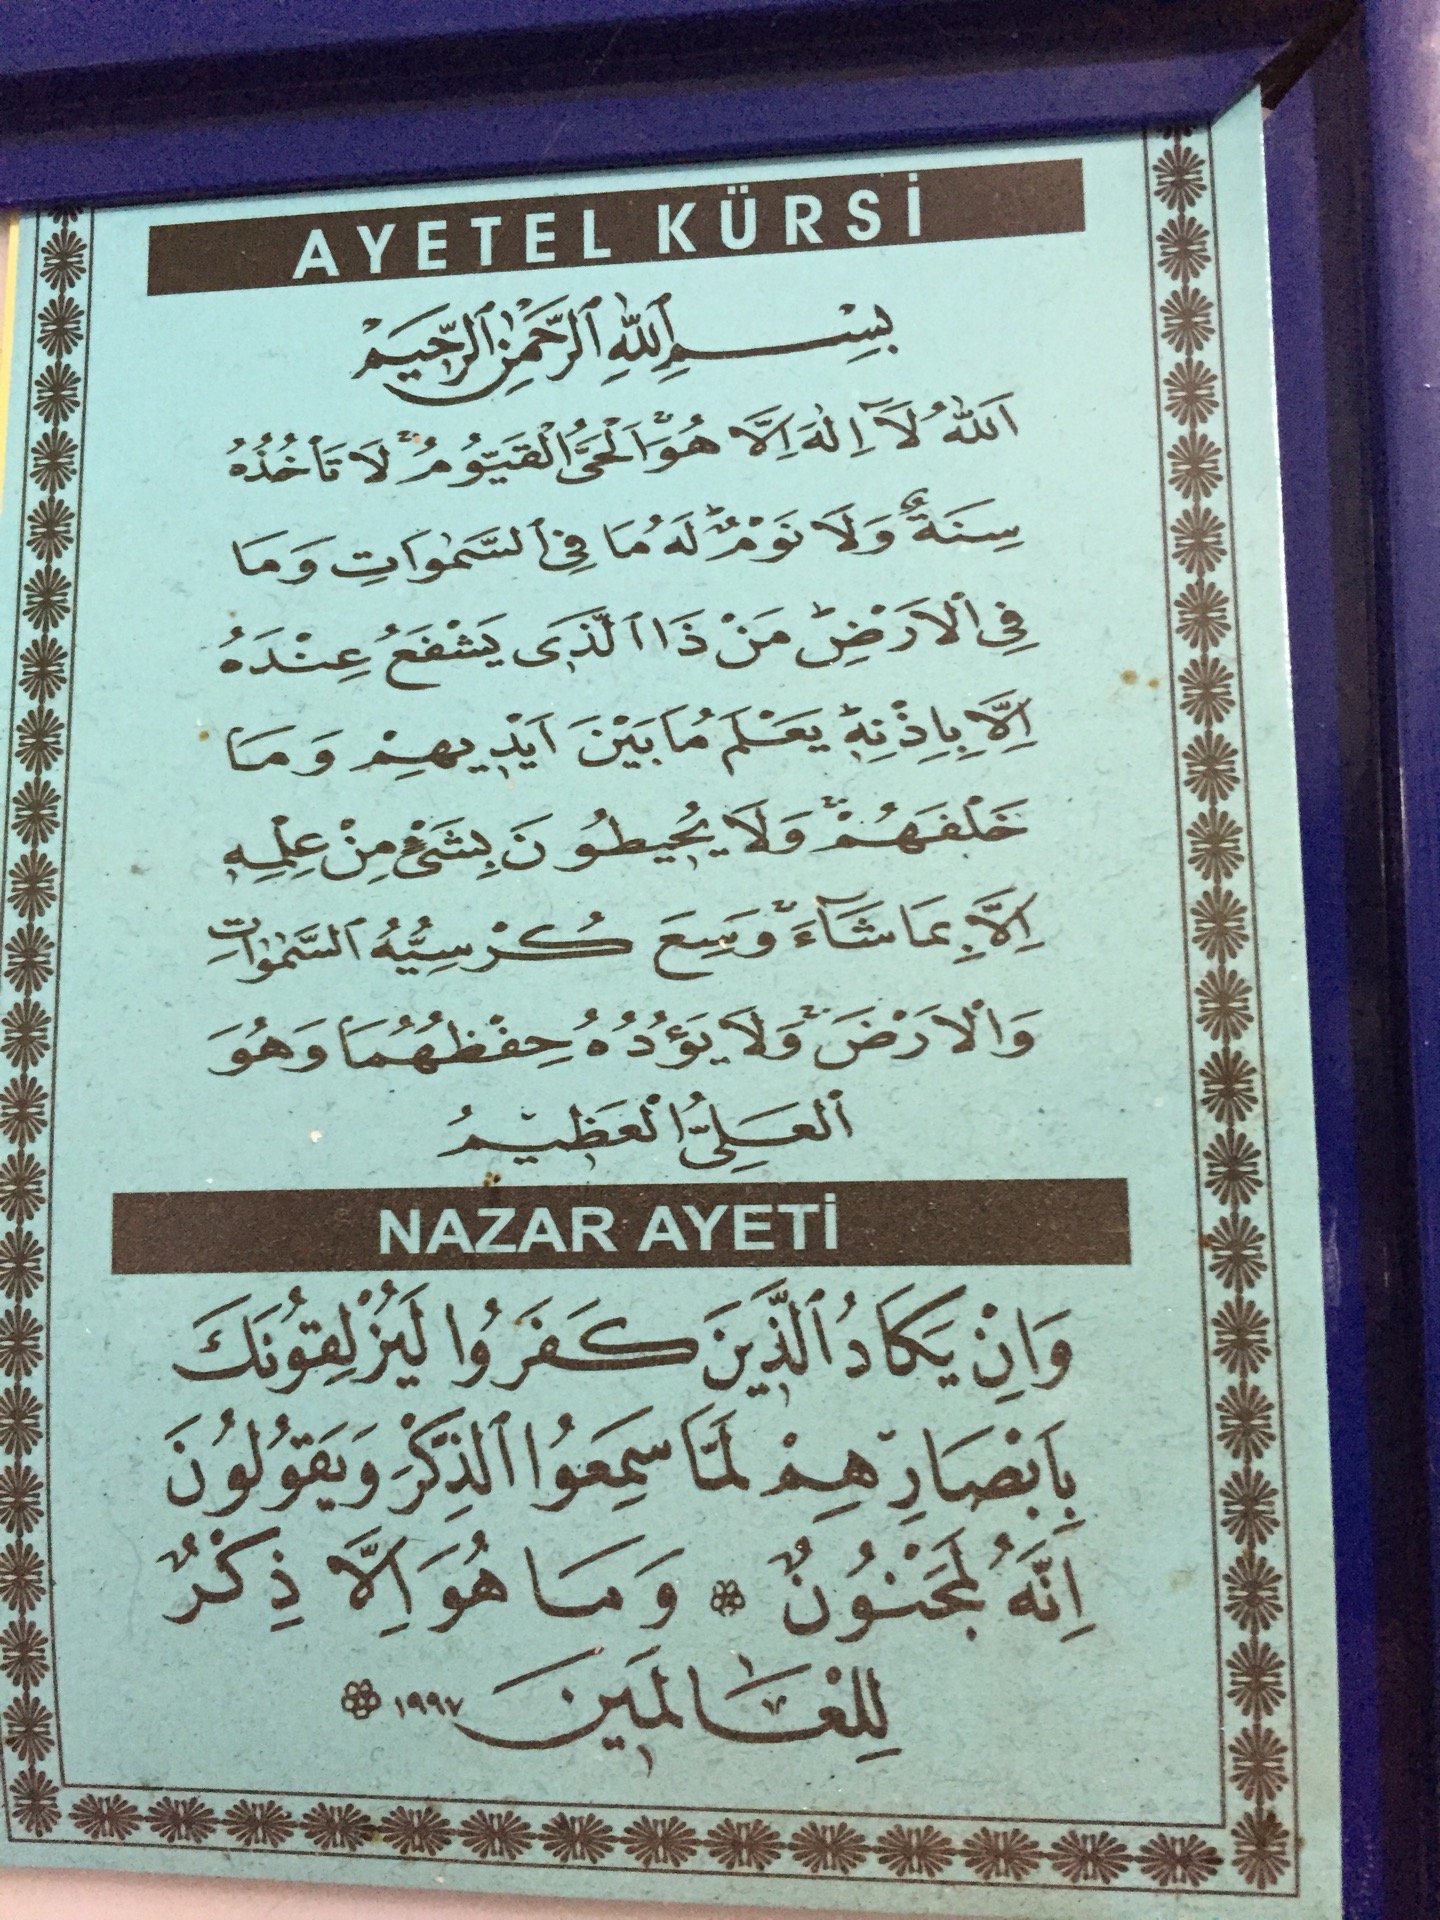 AYETEL KÜRSİ
بِسْــــمِ ٱللّٰهِ ٱلرَّحْمٰنِ ٱلرَّحِيمْ
اَللّٰهُ لَٓا اِلٰهَ اِلَّا هُوَۚ اَلْحَىُّ الْقَيّوُمُۚ لَا تَأْخُذُهُ
سِنَةٌ وَلَا نَوْمٌۜ لَهُ مَا فِى ٱلسَّمٰوَاتِ وَمَا
فِى ٱلْاَرْضِۜ مَنْ ذَا الَّذٖى يَشْفَعُ عِنْدَهُ
اِلَّا بِاِذْنِهٖۜ يَعْلَمُ مَا بَيْنَ اَيْدٖيهِمْ وَمَا
خَلْفَهُمْۚ وَلَا يُحٖيطُونَ بِشَىْءٍ مِنْ عِلْمِهٖ
اِلَّا بِمَا شَٓاءَۚ وَسِعَ كُرْسِيُّهُ ٱلسَّمٰوَاتِ
وَالْاَرْضَۚ وَلَا يَؤُدُهُ حِفْظُهُمَا وَهُوَ
ٱلْعَلِىُّ الْعَظٖيمُ
NAZAR AYETİ
وَاِنْ يَكَادُ ٱلَّذٖينَ كَفَرُوا لَيُزْلِقُونَكَ
بِاَبْصَارِهِمْ لَمَّا سَمِعُوا ٱلذِّكْرَ وَيَقُولُونَ
اِنَّهُ لَمَجْنُونٌ ۞ وَمَا هُوَ اِلَّا ذِكْرٌ
لِلْعَالَمٖينَ ١٩٩٧ ۞